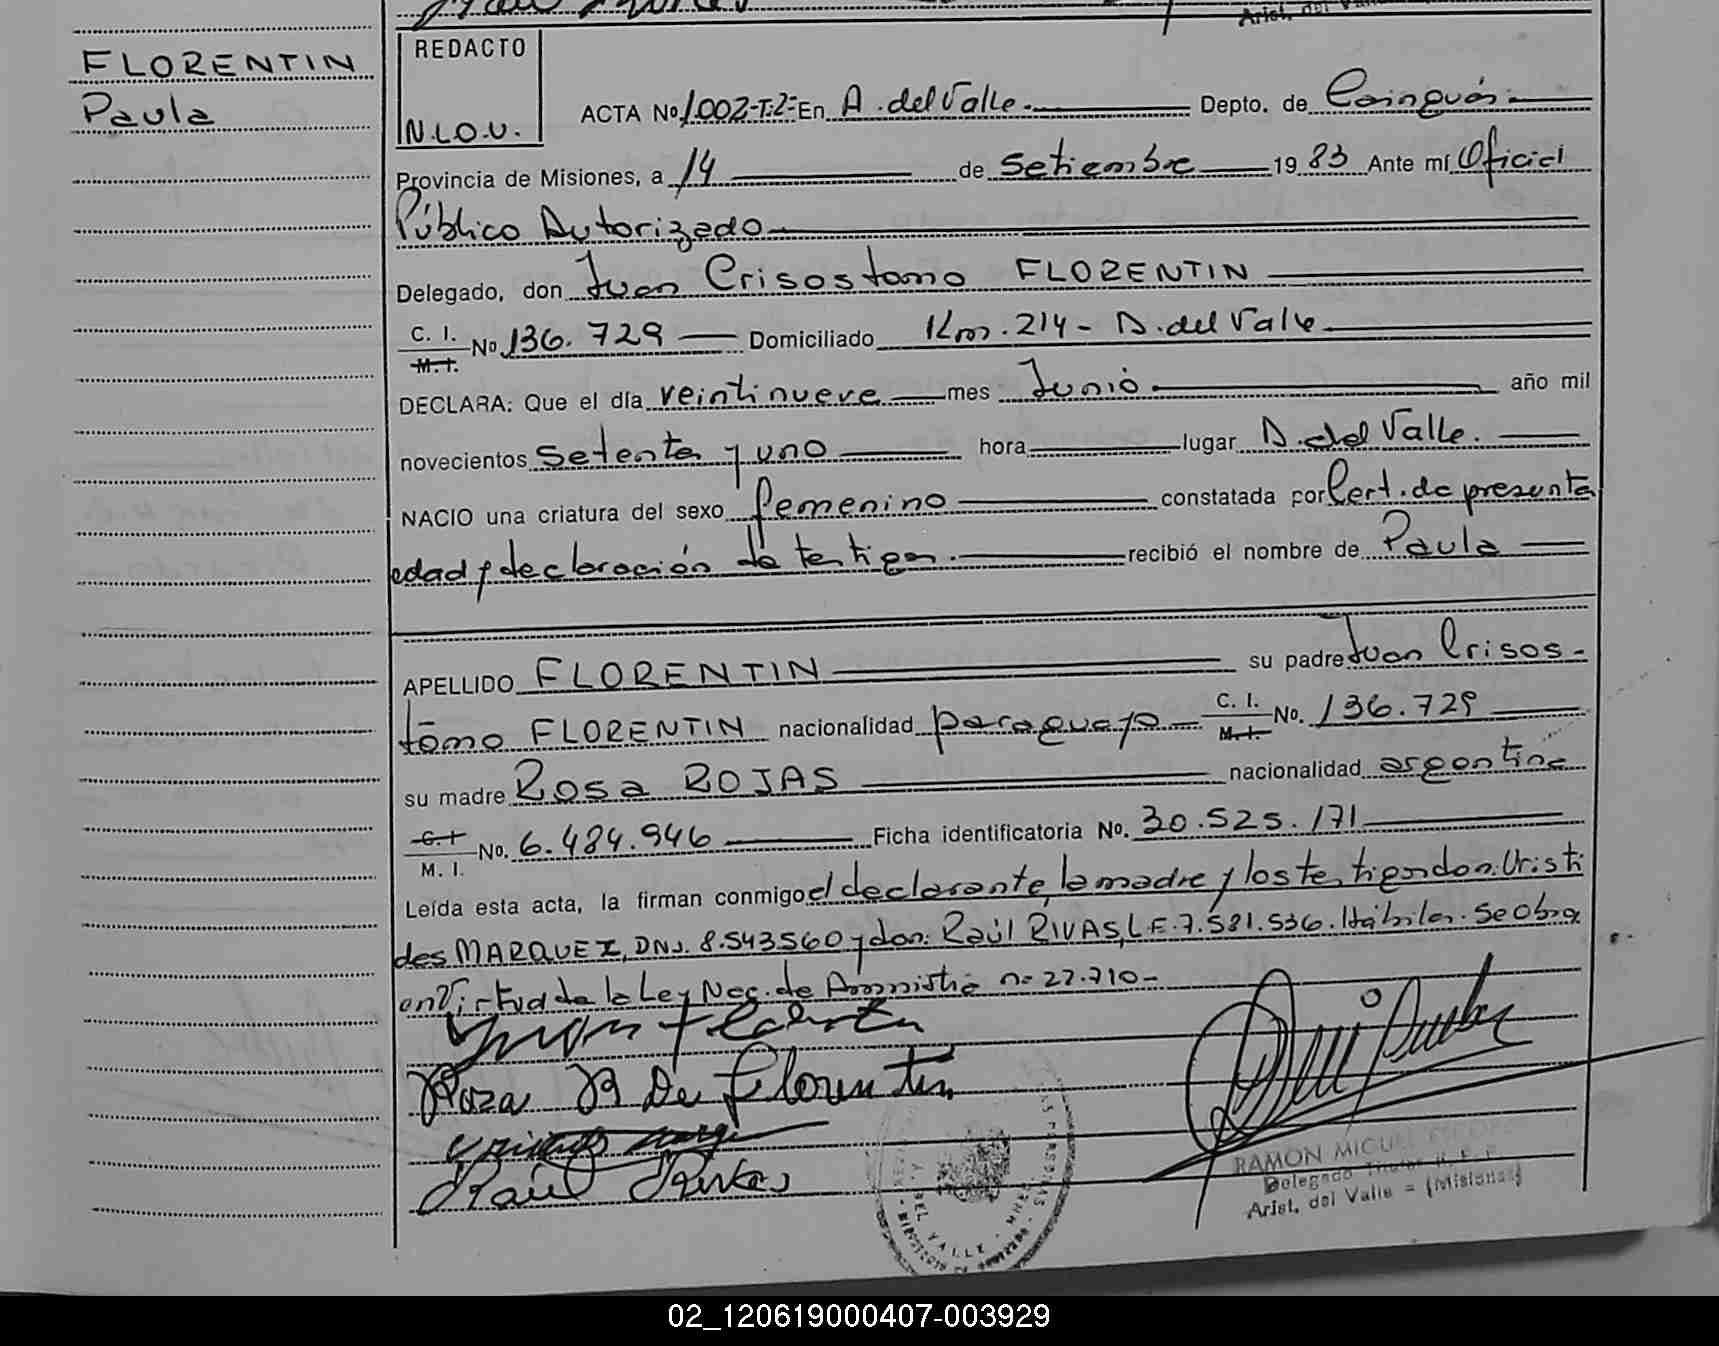 FLORENTIN
Paula
REDACTO
N.L.O.U.
ACTA No 1.002-T.2- En A. del Valle. Depto. de Cainguás.
Provincia de Misiones, a 14 de Setiembre 1983 Ante mí Oficial
Público Autorizado
Delegado, don Juan Crisostomo FLORENTIN
C. I. M. I. No 136.729 Domiciliado Km. 214 - A. del Valle.
DECLARA: Que el día veintinueve mes Junio. año mil
novecientos setenta y uno hora lugar A. del Valle.
NACIO una criatura del sexo femenino constatada por Cert. de presunta
edad y declaración de testigos. recibió el nombre de Paula
APELLIDO FLORENTIN su padre Juan Crisos-
tomo FLORENTIN nacionalidad paraguaya C. I. M. I. No. 136.729
su madre Rosa ROJAS nacionalidad argentina
C. I M. I. No. 6.484.946 Ficha identificatoria No. 30.525.171
Leída esta acta, la firman conmigo el declarante, la madre y los testigos don: Cristi
des MARQUEZ, DNI. 8.543560 y don: Raúl RIVAS, L.E. 7.581.536. Hábiles. Se Obra
en Virtud de la Ley Nac. de Amnistía nº 22.710-
Roza R De Florentin
Raul Rivas
RAMON MIGUEL
Delegado Titular R. E. P.
Arist. del Valle = (Misiones)
DEL VALLE
02_120619000407-003929